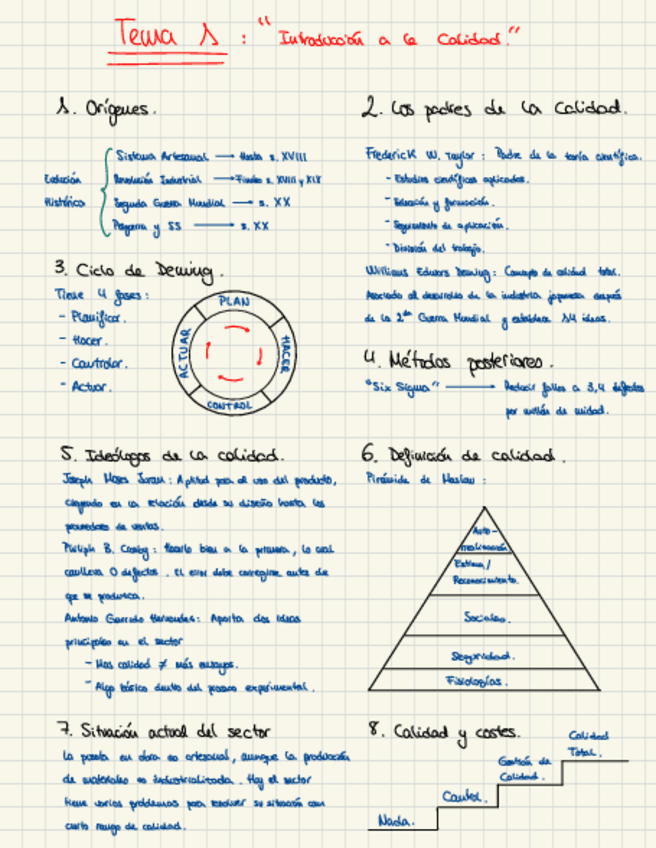 Tema 1 : "Introducción a la Calidad."
1. Orígenes.
Evolución Histórico
Sistema Artesanal → Hasta s. XVIII
Revolución Industrial → Finales s. XVIII y XIX
Segunda Guerra Mundial → s. XX
Posguerra y SS → s. XX
2. Los padres de la Calidad.
Frederick W. Taylor : Padre de la teoría científica.
- Estudios científicos aplicados.
- Educación y formación.
- Seguimiento de aplicación.
- División del trabajo.
Williams Edwars Deming : Concepto de calidad total.
Asociado al desarrollo de la industria japonesa después
de la 2ª Guerra Mundial y establece 14 ideas.
3. Ciclo de Deming.
Tiene 4 fases :
- Planificar.
- Hacer.
- Controlar.
- Actuar.
PLAN
HACER
CONTROL
ACTUAR
4. Métodos posteriores.
"Six Sigma" → Reducir fallos a 3,4 defectos
por millón de unidad.
5. Ideólogos de la calidad.
Joseph Moses Juran : Aptitud para el uso del producto,
en la relación desde su diseño hasta los
proveedores de ventas.
Philiph B. Crosby : Hacerlo bien a la primera, lo cual
conlleva 0 defectos. El error debe corregirse antes de
que se produzca.
Antonio Garrido Hernandez : Aporta dos ideas
principales en el sector
- Mas calidad ≠ más ensayos.
- Algo básico dentro del proceso experimental.
6. Definición de calidad.
Pirámide de Maslow :
Auto-
realización
Estima /
Reconocimiento.
Sociales.
Seguridad.
Fisiologías.
7. Situación actual del sector
La puesta en obra es artesanal, aunque la producción
de materiales es industrializada. Hoy el sector
tiene varios problemas para resolver su situación con
cierto rango de calidad.
8. Calidad y costes.
Nada.
Control.
Gestión de
Calidad.
Calidad
Total.